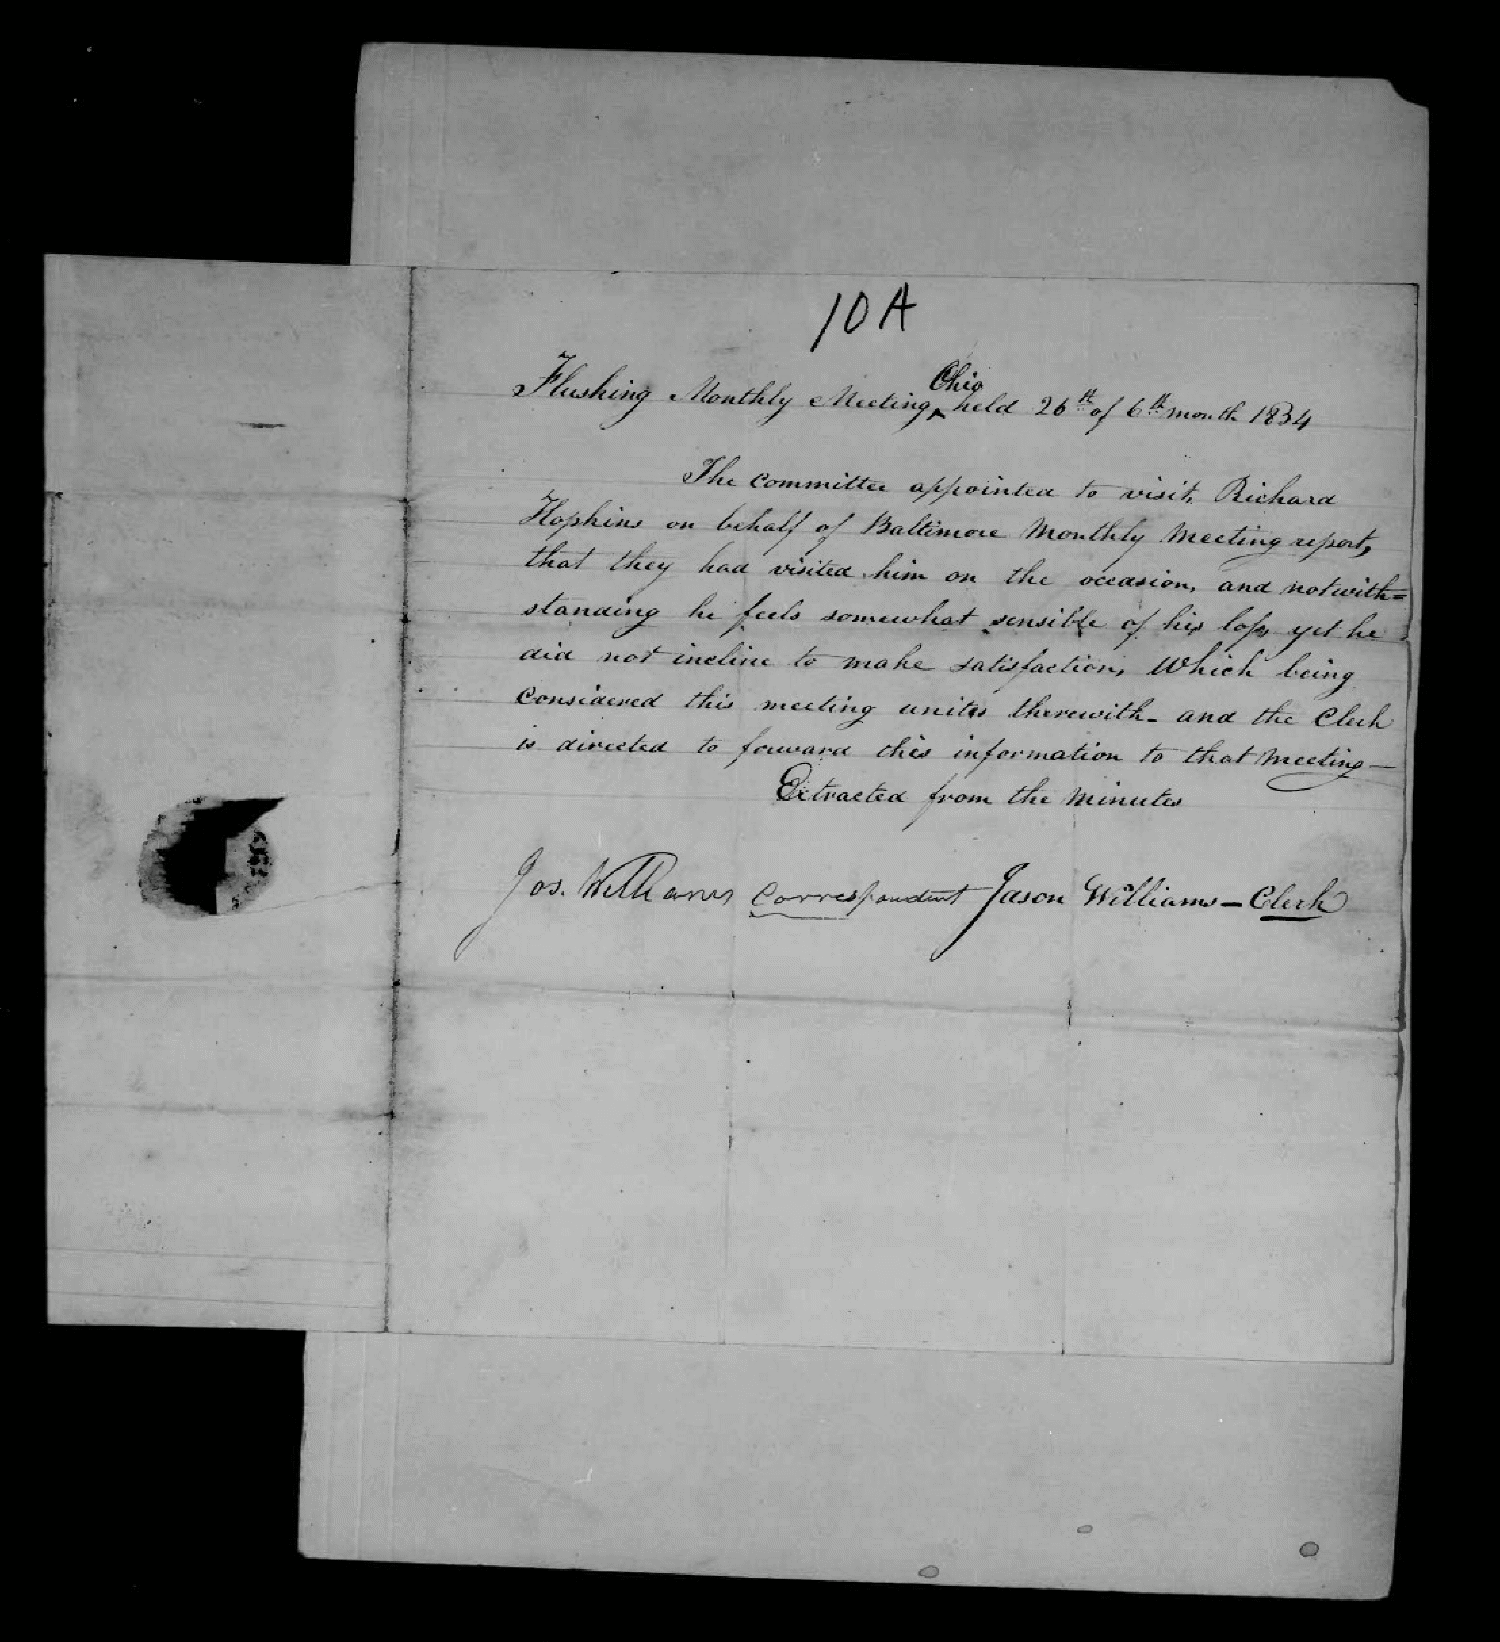 10A
Flushing Monthly Meeting, Ohio held 26th of 6th month 1834
The committee appointed to visit, Richard
Hopkins on behalf of Baltimore Monthly Meeting report,
that they had visited him on the occasion, and notwith=
standing he feels somewhat sensible of his loss, yet he
did not incline to make satisfaction, Which being
considered this meeting unites therewith - and the Clerk
is directed to forward this information to that Meeting -
Extracted from the Minutes
Jos. Williams Correspondent Jason Williams - Clerk